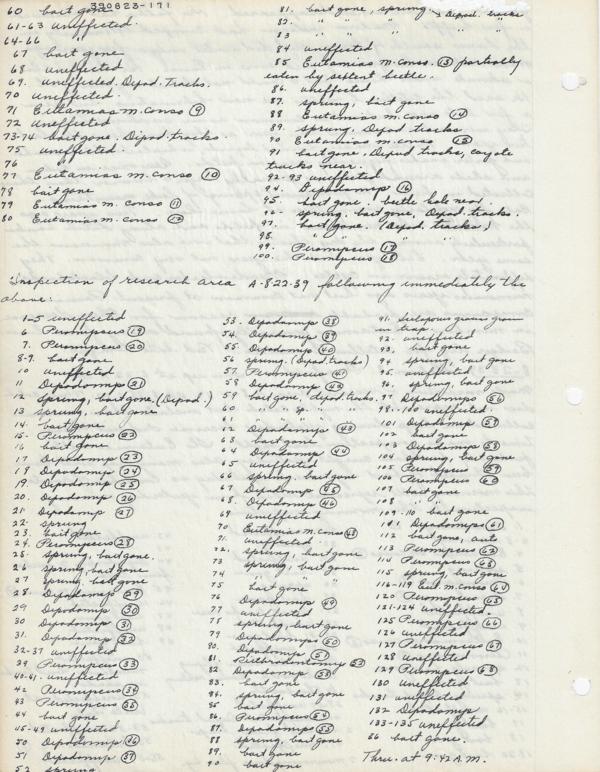 390823-171
60 bait gone
61-63 uneffected.
64-66 "
67 bait gone
68 uneffected
69. uneffected. Dipod. tracks.
70 uneffected.
71 Eutamias m. conso (9)
72 Uneffected
73-74 bait gone. Dipod. tracks.
75 uneffected.
76 "
77 Eutamias m. conso (10)
78 bait gone
79 Eutamias m. conso (11)
80 Eutamias m. conso (12)
81. bait gone, spring. Dipod. tracks
82. " "
83 " "
84 uneffected
85 Eutamias m. conso. (13) partially
eaten by sextent beetle.
86. uneffected
87. sprung, bait gone
88 Eutamias m. conso (14)
89. sprung, Dipod tracks
90 Eutamias m. conso (15)
91 bait gone, Dipod tracks, coyote
tracks near.
92-93 uneffected
94. Dipodomys (16)
95. bait gone. beetle hole near.
96- sprung, bait gone, Dipod. tracks.
97. bait gone. (Dipod. tracks)
98. " "
99. Peromyscus (17)
100. Peromyscus (18)
Inspection of research area A-8.22.39 following immediately the
above:
1-5 uneffected
6 Peromyscus (19)
7. Peromyscus (20)
8-9. bait gone
10 uneffected
11 Dipodomys (21)
12 Sprung, bait gone, (Dipod.)
13 sprung, bait gone
14. bait gone
15- Peromyscus (22)
16 bait gone
17 Dipodomys (23)
18 Dipodomys (24)
19. Dipodomys (25)
20. Dipodomys (26)
21 Dipodomys (27)
22- sprung
23. bait gone
24. Peromyscus (28)
25. sprung, bait gone.
26 sprung, bait gone
27 sprung, bait gone
28. Dipodomys (29)
29 Dipodomys (30)
30 Dipodomys (31)
31. Dipodomys (32)
32-37 uneffected
39 Peromyscus (33)
40-41. uneffected
42 Peromyscus (34)
43 Peromyscus (35)
44 bait gone
45-49 uneffected
50 Dipodomys (36)
51 Dipodomys (37)
52 sprung
53. Dipodomys (38)
54. Dipodomys (39)
55. Dipodomys (40)
56 sprung. (Dipod. tracks)
57. Peromyscus (41)
58 Dipodomys (42)
59 bait gone, dipod. tracks.
60 " " sp. "
61 " " " "
62 Dipodomys (43)
63 bait gone
64 Dipodomys (44)
65 uneffected
66 sprung, bait gone
67 Dipodomys (45)
68. Dipodomys (46)
69 uneffected
70 Eutamias m. conso
71 uneffected
72. sprung, bait gone
73 sprung, bait gone
74 " " "
75 bait gone
76 Dipodomys (49)
77 uneffected
78 sprung, bait gone
79 Dipodomys (50)
80. Dipodomys (51)
81. Reithrodontomys (52)
82 Dipodomys (53)
83. bait gone
84. sprung, bait gone
85 bait gone
86. Peromyscus (54)
87. Dipodomys (55)
88 sprung, bait gone
89. bait gone
90 bait gone
91. Sceloporus
in trap.
92. uneffected
93. bait gone
94 sprung, bait gone
95 uneffected
96. sprung, bait gone
97 Dipodomys (56)
98-100 uneffected.
101 Dipodomys (57)
102 bait gone
103 Dipodomys (58)
104 sprung, bait gone
105 Peromyscus (59)
106 Peromyscus (60)
107 bait gone
108 " "
109-10 bait gone
111 Dipodomys (61)
112 bait gone, ants
113 Peromyscus (62)
114 Peromyscus (63)
115 sprung, bait gone
116-119 Eut. m. conso (64)
120 Peromyscus (65)
121-124 uneffected.
125 Peromyscus (66)
126 uneffected
127 Peromyscus (67)
128 uneffected
129 Peromyscus (68)
130 uneffected
131 uneffected
132 Dipodomys
133-135 uneffected
86 bait gone.
Thru. at 9:42 A.M.